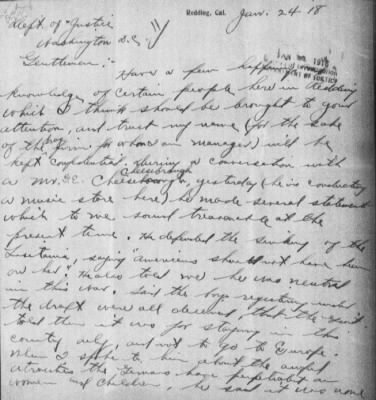 Redding, Cal. Jan. 24 18
Dept of Justice
Washington D.C.
Gentlemen:-
Have a few
knowledge of certain people here in Redding
which I think should be brought to your
attention, and trust my name (for the sake
of the firm for whom am manager) will be
kept confidential. During a conversation with
Cheesebrough
a Mr. yesterday (he is conducting
a music store here) he made several statements
which to me sound treasonable at the
present time. He defended the sinking of the
Lusitania, saying "Americans should not have been
on her". He also told me he was neutral
in this war. Said the boys registering under
the draft were all deceived, that the Gov't.
told them it was for staying in this
country only, and not to go to Europe.
When I spoke to him about the awful
atrocities the Germans have perpetrated on
women and children, he said it was